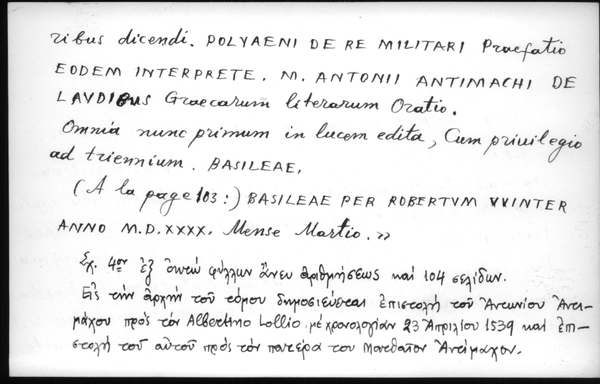 ribus dicendi. POLYAENI DE RE MILITARI Praefatio
EODEM INTERPRETE. M. ANTONII ANTIMACHI DE
LAVDIBUS Graecarum literarum Oratio.
Omnia nunc primum in lucem edita, Cum priuilegio
ad triennium. BASILEAE,
(A la page 103:) BASILEAE PER ROBERTVM VVINTER
ANNO M.D.XXXX. Mense Martio.»
Σχ. 4ον ἐξ ὀκτὼ φύλλων ἄνευ ἀριθμήσεως καὶ 104 σελίδων.
Εἰς τὴν ἀρχὴν τοῦ τόμου δημοσιεύεται ἐπιστολὴ τοῦ Ἀντωνίου Ἀντι-
μάχου πρὸς τὸν Albertino Lollio, μὲ χρονολογίαν 23 Ἀπριλίου 1539 καὶ ἐπι-
στολὴ τοῦ αὐτοῦ πρὸς τὸν πατέρα του Ἀντίμαχον.